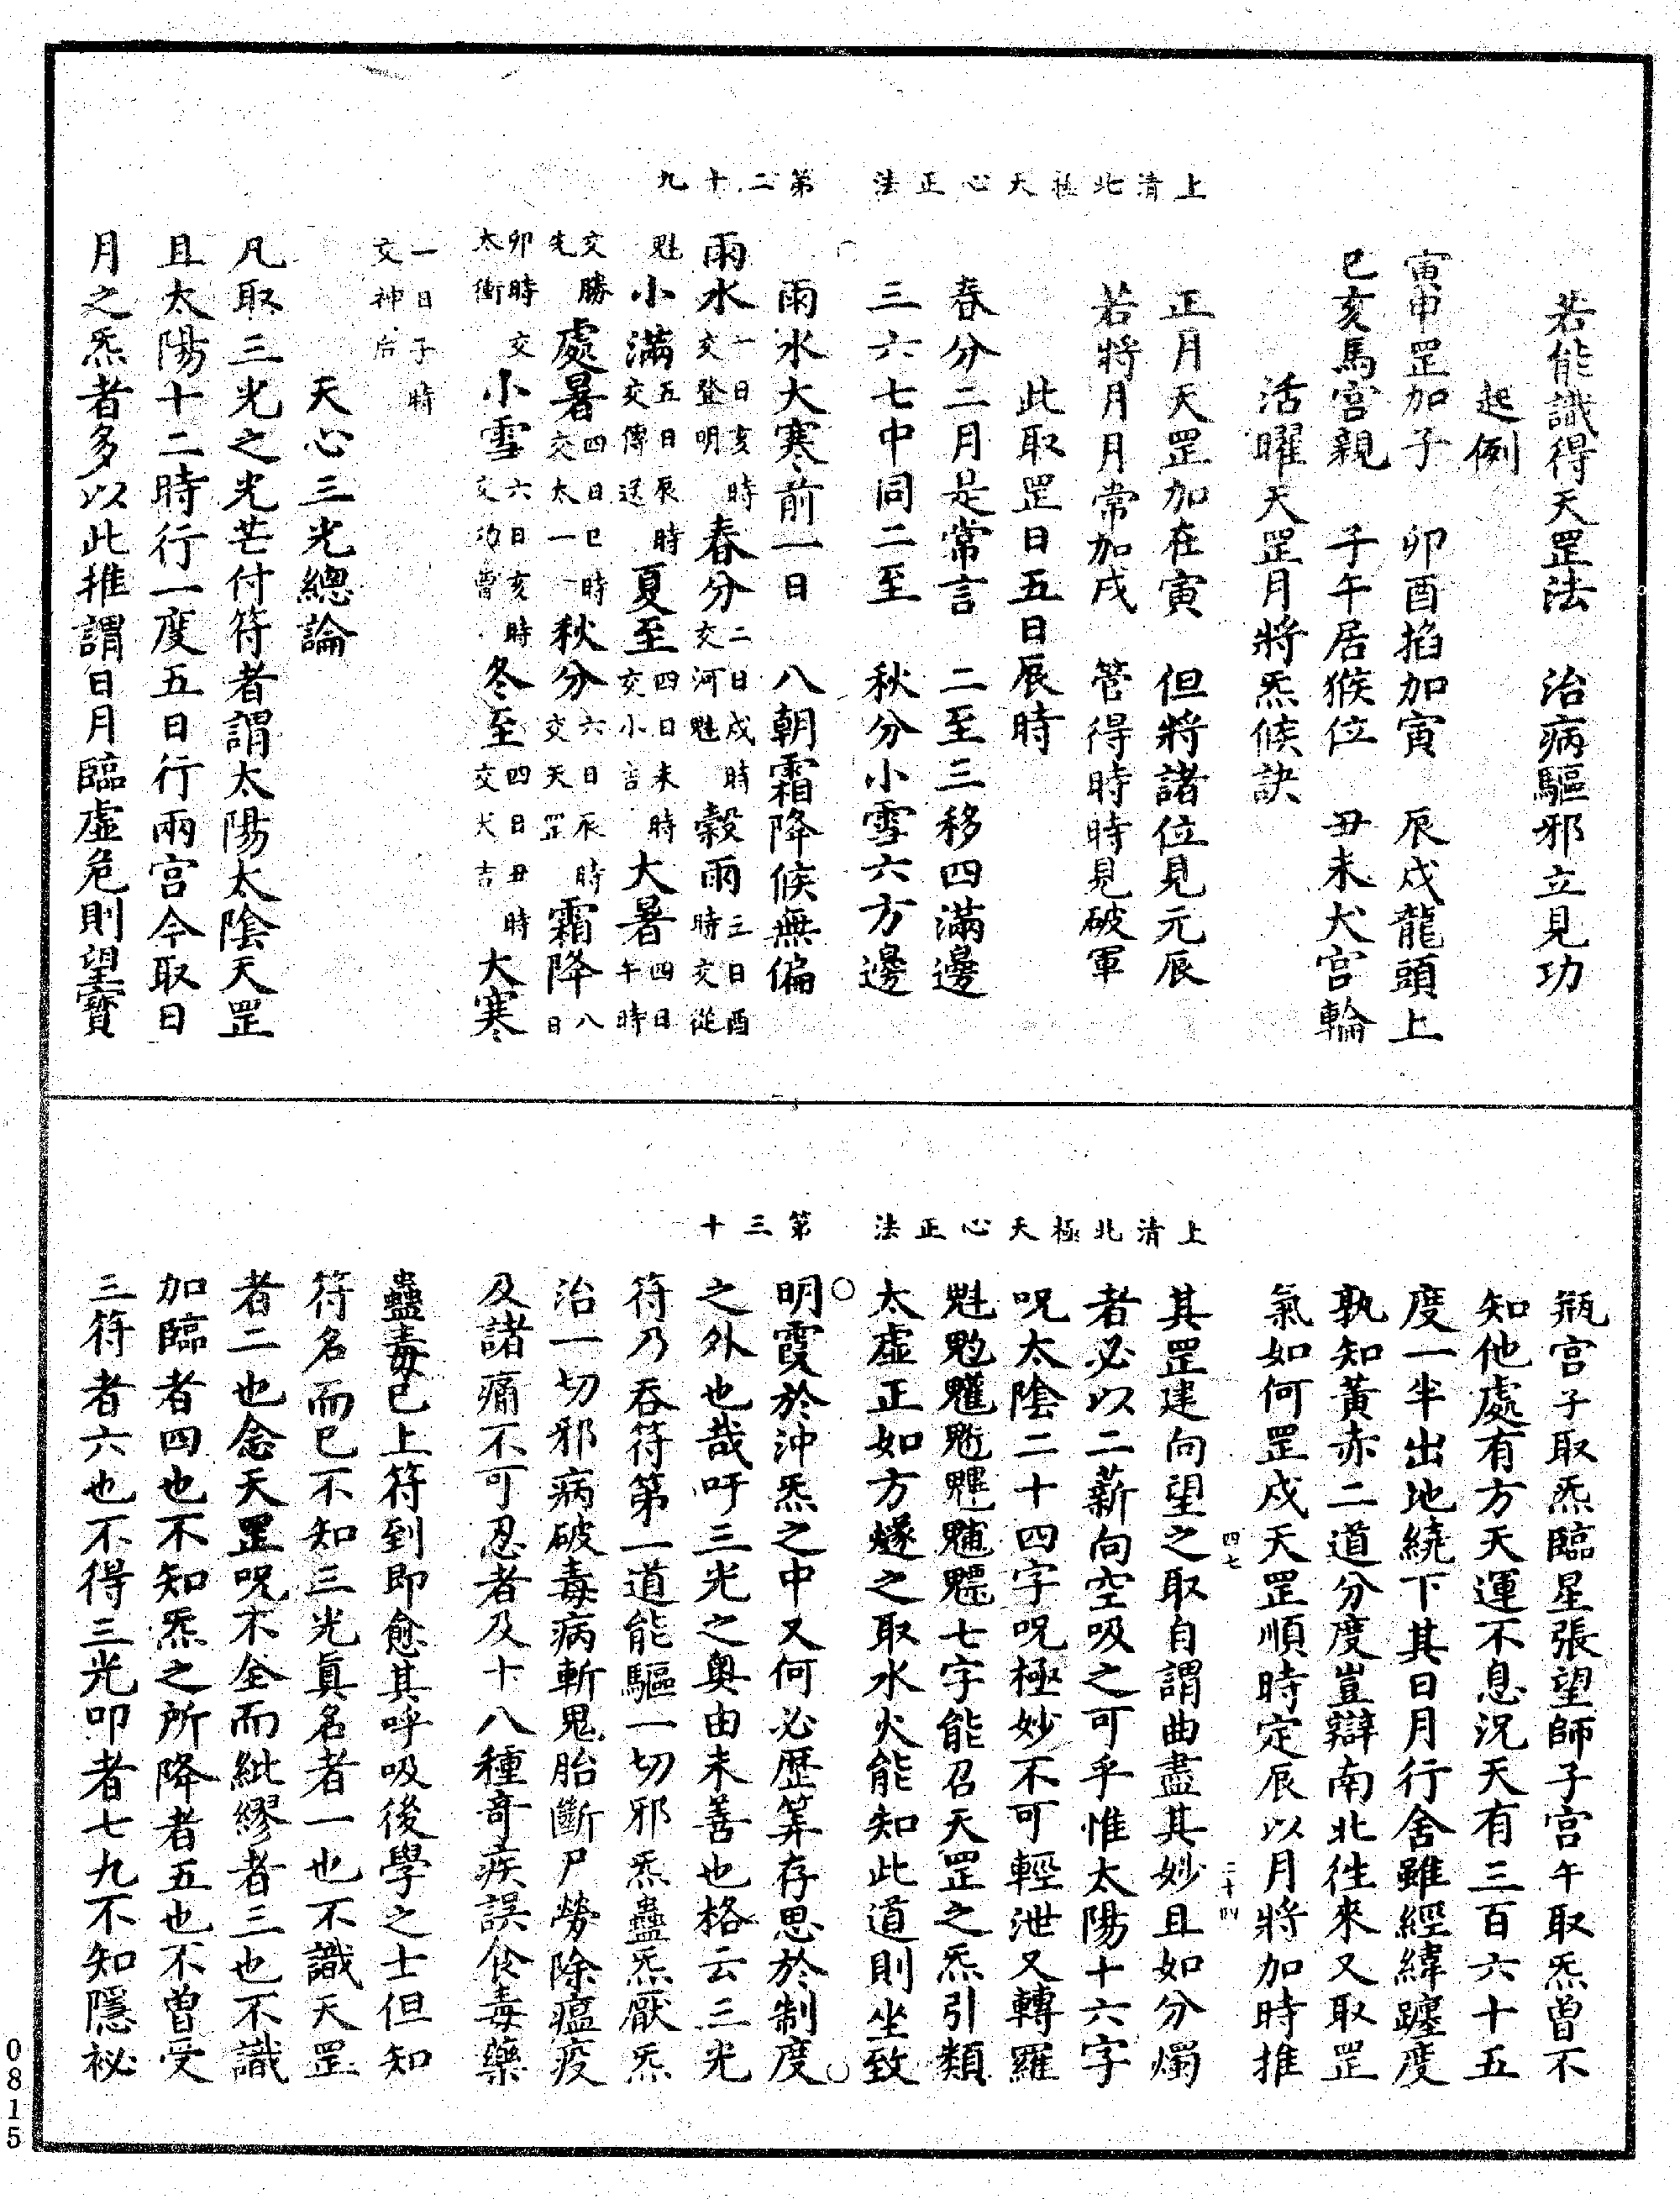 若能識得天罡法　治病驅邪立見功
起例
寅申罡加子　卯酉掐加寅　辰戌龍頭上
巳亥馬宮親　子午居猴位　丑未犬宮輪
活曜天罡月將炁候訣
正月天罡加在寅　但將諸位見元辰
若將月月常加戌　管得時時見破軍
此取罡日五日辰時
春分二月是常言　二至三移四滿邊
三六七中同二至　秋分小雪六方邊
上清北極天心正法　第二十九
雨水大寒前一日　八朝霜降候無偏
雨水一日亥時交登明　春分二日戌時交河魁　穀雨三日酉時交從
魁　小滿五日辰時交傳送　夏至四日未時交小吉　大暑四日午時
交勝先　處暑四日巳時交太一　秋分六日辰時交天罡　霜降八日
卯時交太衝　小雪六日亥時交功曹　冬至四日丑時交大吉　大寒
一日子時交神后
天心三光總論
凡取三光之光芒付符者謂太陽太陰天罡
且太陽十二時行一度五日行兩宮今取日
月之炁者多以此推謂日月臨虛危則望寶
瓶宮子取炁臨星張望師子宮午取炁曾不
知他處有方天運不息況天有三百六十五
度一半出地繞下其日月行舍雖經緯躔度
孰知黃赤二道分度豈辯南北徃來又取罡
氣如何罡戌天罡順時定辰以月將加時推
四七　二十四
其罡建向望之取自謂曲盡其妙且如分燭
者必以二薪向空吸之可乎惟太陽十六字
呪太陰二十四字呪極妙不可輕泄又轉羅
魁𩲃䰢魓䰡魒魑七字能召天罡之炁引類
太虛正如方燧之取水火能知此道則坐致
上清北極天心正法　第三十
明霞於沖炁之中又何必歷筭存思於制度
之外也哉吁三光之奥由未善也格云三光
符乃吞符第一道能驅一切邪炁蠱炁厭炁
治一切邪病破毒病斬鬼胎斷尸勞除瘟疫
及諸痛不可忍者及十八種奇疾誤食毒藥
蠱毒已上符到即愈其呼吸後學之士但知
符名而已不知三光眞名者一也不識天罡
者二也念天罡呪不全而紕繆者三也不識
加臨者四也不知炁之所降者五也不曾受
三符者六也不得三光叩者七九不知隱祕
0815